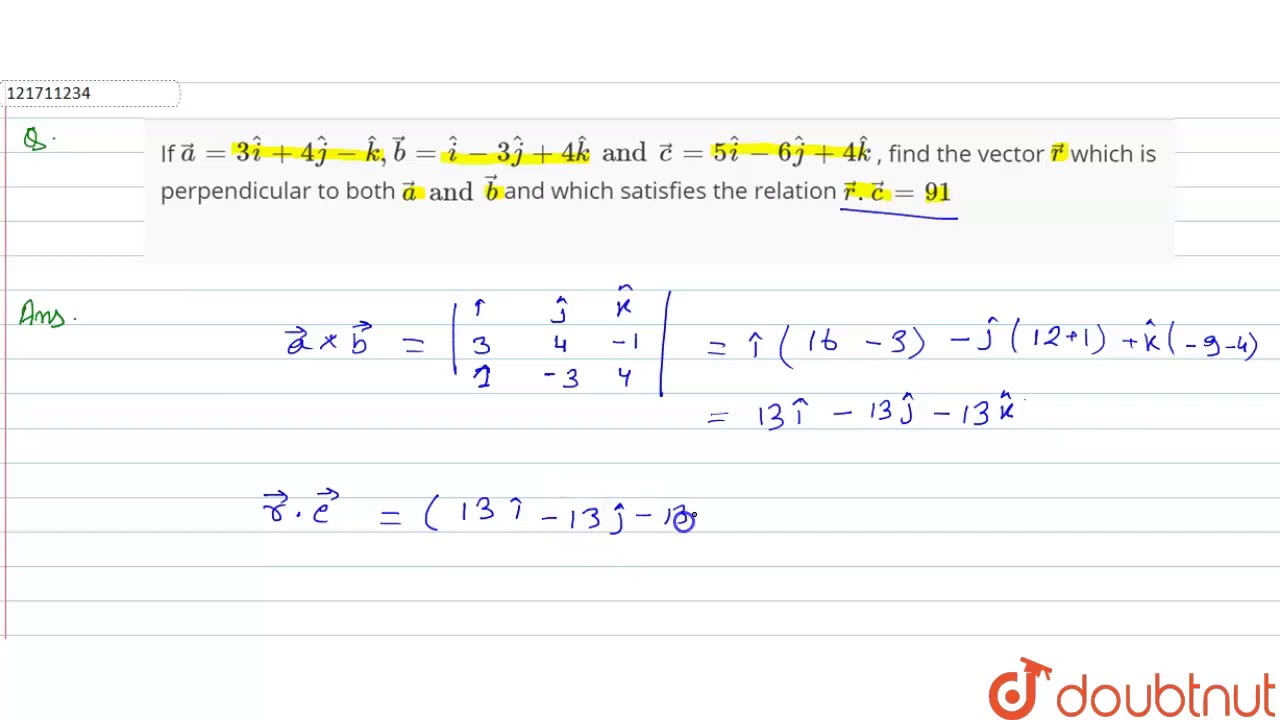 121711234
Q.
If $\vec{a} = 3\hat{i} + 4\hat{j} - \hat{k}, \vec{b} = \hat{i} - 3\hat{j} + 4\hat{k}$ and $\vec{c} = 5\hat{i} - 6\hat{j} + 4\hat{k}$, find the vector $\vec{r}$ which is
perpendicular to both $\vec{a}$ and $\vec{b}$ and which satisfies the relation $\vec{r}.\vec{c} = 91$
Ans.
$\vec{a} \times \vec{b} = \begin{vmatrix} \hat{i} & \hat{j} & \hat{k} \\ 3 & 4 & -1 \\ 1 & -3 & 4 \end{vmatrix} = \hat{i}(16 - 3) - \hat{j}(12+1) + \hat{k}(-9-4)$
$= 13\hat{i} - 13\hat{j} - 13\hat{k}$
$\vec{r} \cdot \vec{c} = (13\hat{i} - 13\hat{j} - 13$
doubtnut